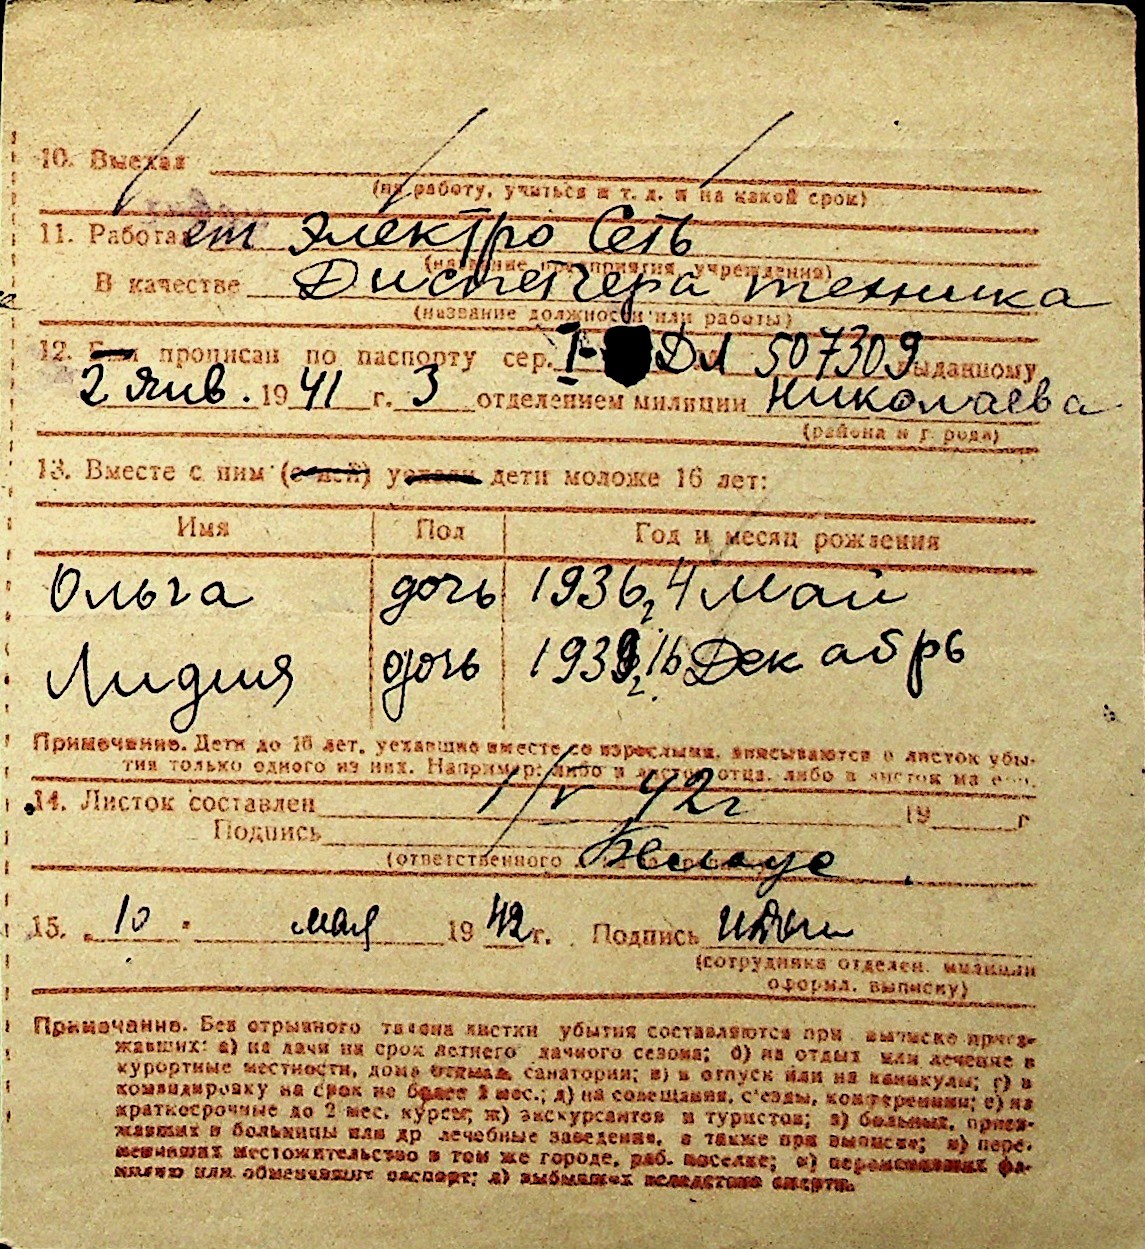 10. Выехал
(на работу, учиться и т. д. и на какой срок)
11. Работает Электро Сеть
(название предприятия, учреждения)
В качестве Диспетчера техника
(название должности или работы)
12. Был прописан по паспорту сер. I- ДЛ 507309 выданному
2 янв. 1941 г. 3 отделением милиции Николаева
(района и города)
13. Вместе с ним (с ней) уехали дети моложе 16 лет:
Имя Пол Год и месяц рождения
Ольга дочь 1936, 4 Май
Лидия дочь 1939, 16 Декабрь
Примечание. Дети до 16 лет, уехавшие вместе со взрослыми, вписываются в листок убы-
тия только одного из них. Например: либо в листок отца, либо в листок матери.
14. Листок составлен 1/V 42г 19 г
Подпись
(ответственного
15. 10 мая 1942 г. Подпись
(сотрудника отделен. милиции
оформл. выписку)
Примечание. Без отрывного талона листки убытия составляются при выписке приез-
жавших: а) на дачи на срок летнего дачного сезона; б) на отдых или лечение в
курортные местности, дома отдыха, санатории; в) в отпуск или на каникулы; г) в
командировку на срок не более 2 мес.; д) на совещания, с'езды, конференции; е) на
краткосрочные до 2 мес. курсы; ж) экскурсантов и туристов; з) больных, приез-
жавших в больницы или др лечебные заведения, а также при выписке; и) пере-
менивших местожительство в том же городе, раб. поселке; к) переменивших фа-
милию или обменявших паспорт; л) выбывших вследствие смерти.